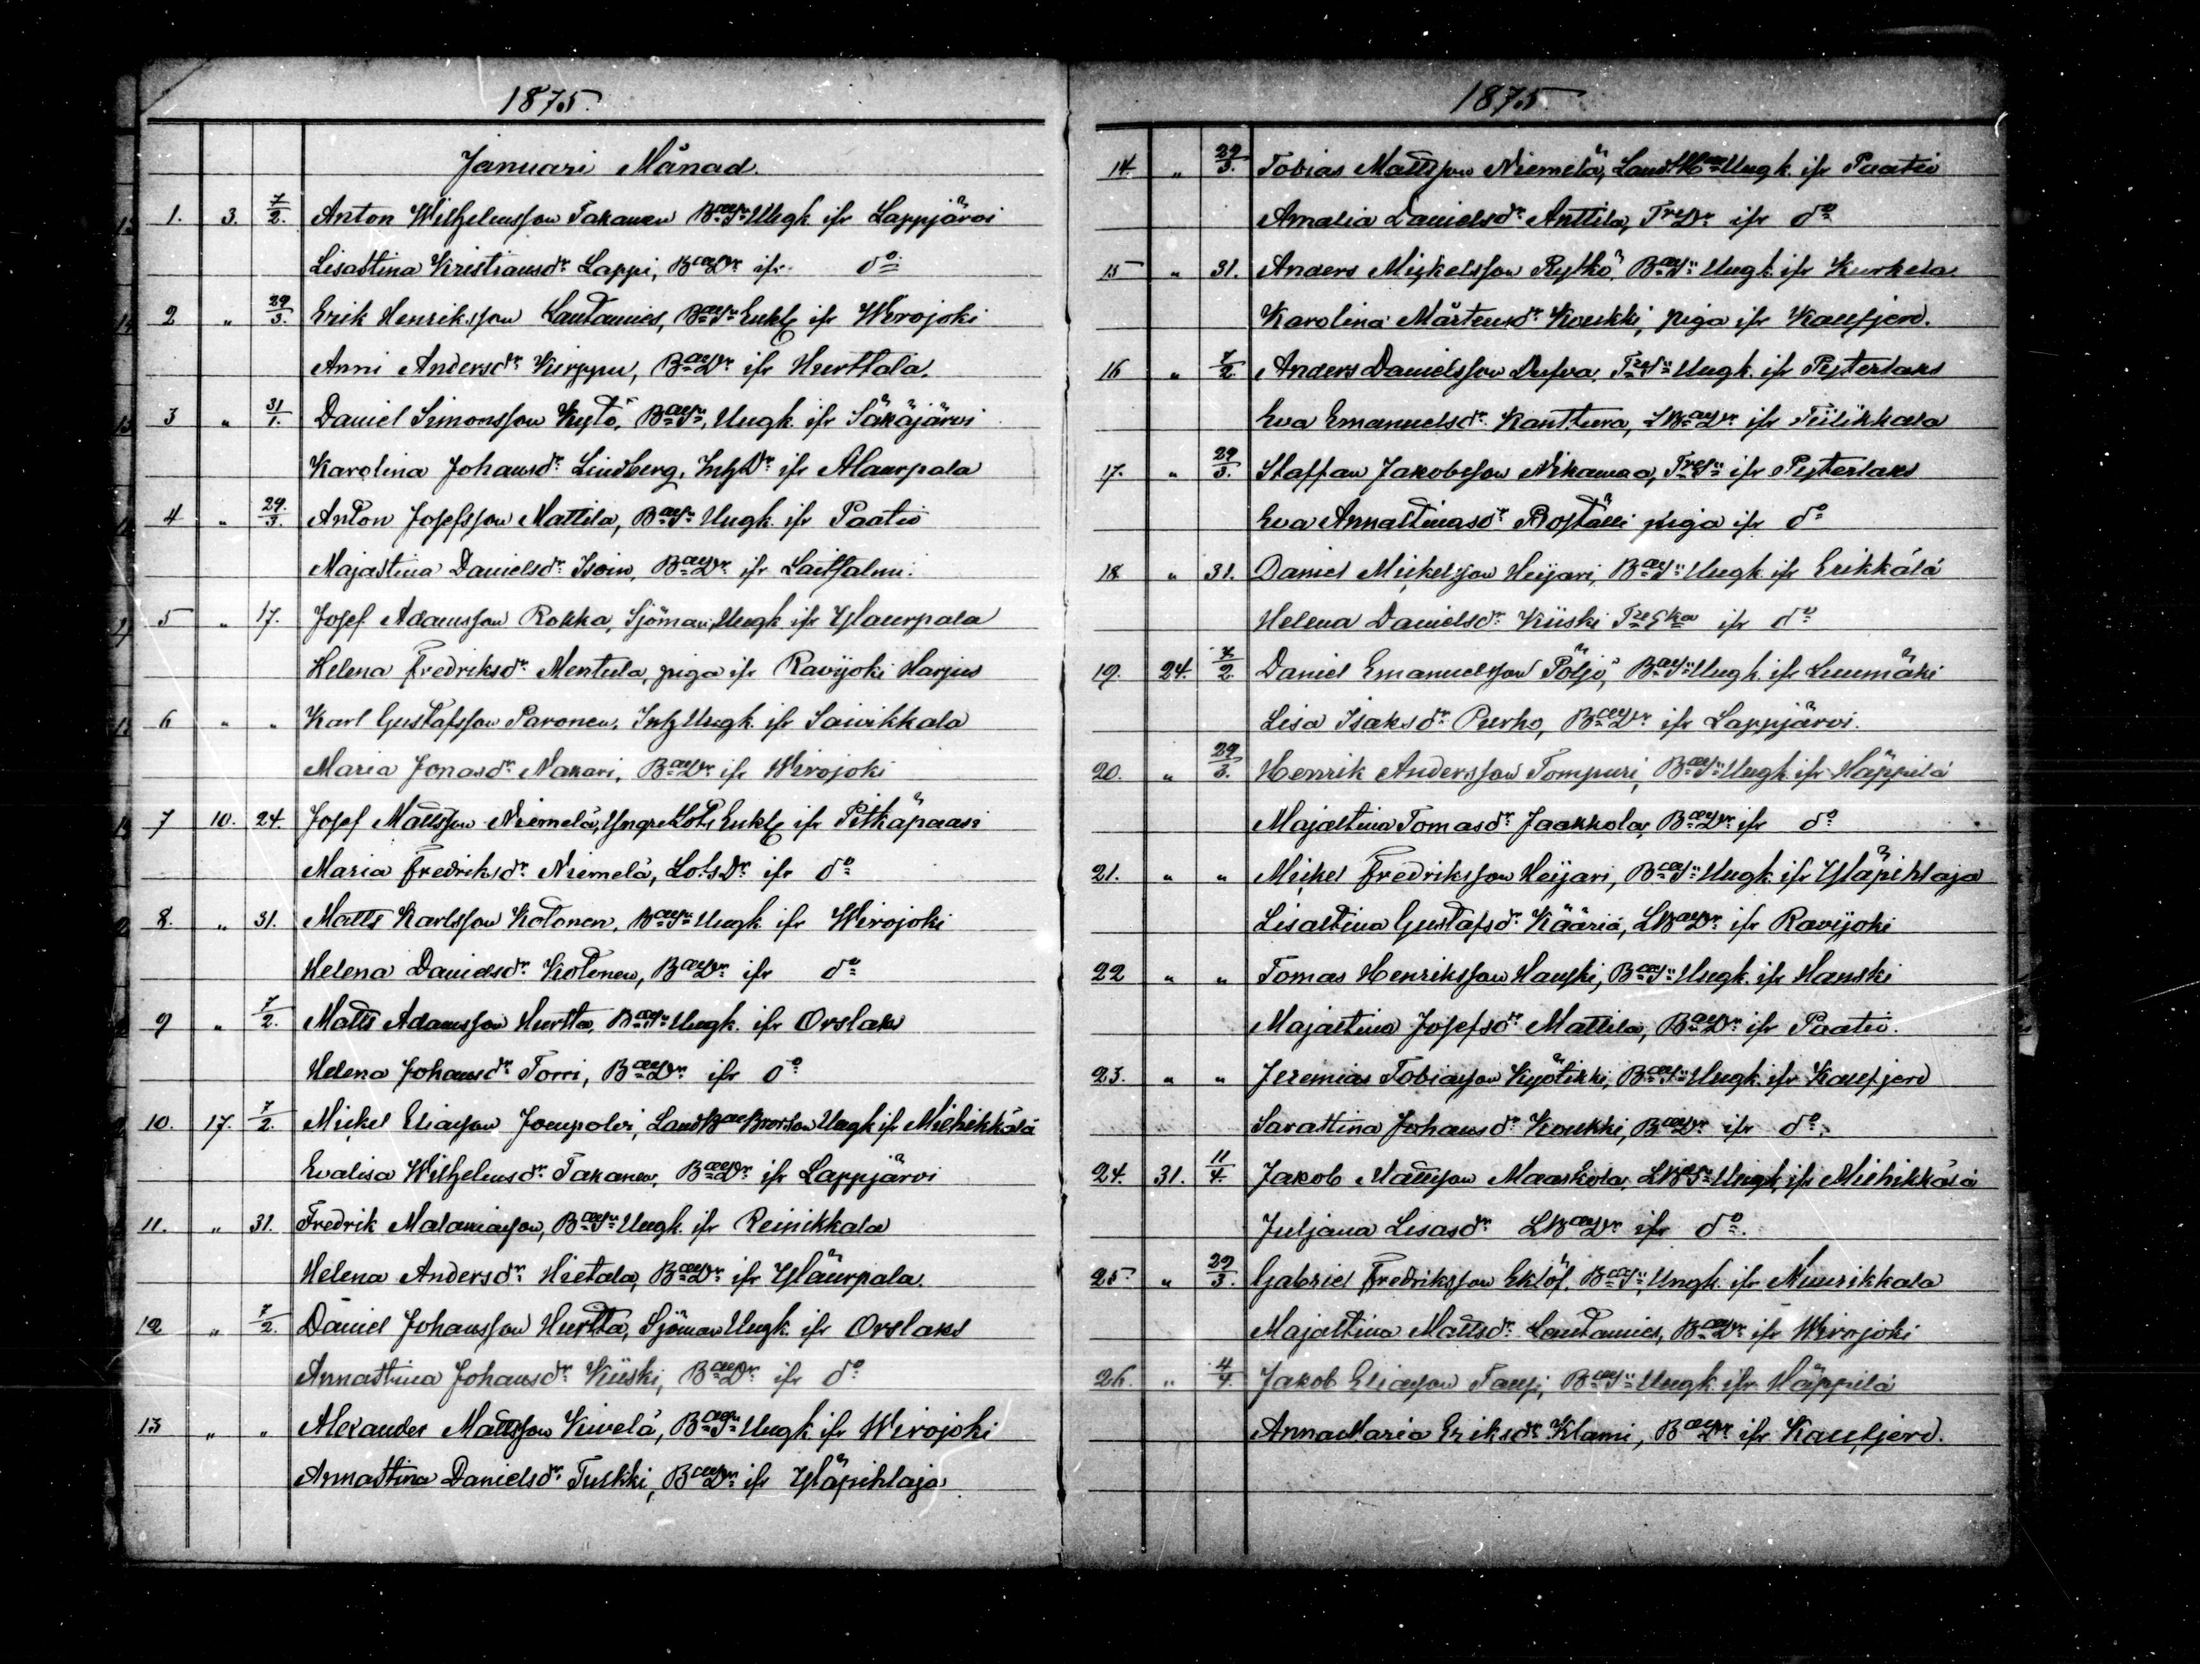 1875.
Januari Månad.
1. 3. 7/2. Anton Wilhelmsson Takanen Bde Sn Ungk. ifr Lappjärvi
Lisastina Kristiansdr Lappi, Bde Dr ifr do
2 " 29/3. Erik Henriksson Lautamies, Bde Sn Enkl ifr Wirojoki
Anni Andersdr Kirppu, Bde Dr ifr Hurttala.
3 " 31/1. Daniel Simonsson Kytö, Bde Sn, Ungk. ifr Säkäjärvi
Karolina Johansdr Lindberg, Inh Dr ifr Alaurpala
4 " 29/3. Anton Josefsson Mattila, Bde Sn Ungk. ifr Paatio
Majastina Danielsdr Isoin, Bde Dr ifr Laitsalmi.
5 " 17. Josef Adamsson Rokka, Sjöman, Ungk. ifr Yläurpala
Helena Fredriksdr Mentula, piga ifr Ravijoki Harjus
6 " " Karl Gustafsson Paronen, Inh Ungk. ifr Saivikkala
Maria Jonasdr Nakari, Bde Dr ifr Wirojoki
7 10. 24. Josef Mattsson Niemelä, Yngre Lots Enkl ifr Pitkäpaasi
Maria Fredriksdr Niemelä, Lots Dr ifr do
8. " 31. Matts Karlsson Kotonen, Bde Sn Ungk. ifr Wirojoki
Helena Danielsdr Kotonen, Bde Dr ifr do
9 " 7/2. Matts Adamsson Hurtta, Bde Sn Ungk. ifr Orslaks
Helena Johansdr Torri, Bde Dr ifr do
10. 17. 7/2. Mickel Eliasson Joenpolvi, Landb Bde Brorson Ungk ifr Miehikkälä
Evalisa Wilhelmsdr Takanen, Bde Dr ifr Lappjärvi
11. " 31. Fredrik Malamiasson, Bde Sn Ungk. ifr Reinikkala
Helena Andersdr Hietala, Bde Dr ifr Yläurpala.
12 " 7/2. Daniel Johansson Hurtta, Sjöman Ungk. ifr Orslaks
Annastina Johansdr Kiiski, Bde Dr ifr do
13 " " Alexander Mattsson Kivelä, Bde Sn Ungk ifr Wirojoki
Annastina Danielsdr Tulkki, Bde Dr ifr Yläpihlaja
1875.
14. " 29/3. Tobias Mattsson Niemelä, Ungk. ifr Paatio
Amalia Danielsdr Anttila, Tre Dr ifr do
15 " 31. Anders Mickelsson Rytkö, Bde Sn Ungk. ifr Kurkela
Karolina Mårtensdr Koukki, piga ifr Kansfjerd.
16 " 7/2. Anders Danielsson Dufva, Tre Sn Ungk. ifr Pyterlaks
Eva Emanuelsdr Kanttura, LBde Dr ifr Tiilikkala
17. " 29/3. Staffan Jakobsson Nikamaa, Tre Sn ifr Pyterlaks
Eva Annastinasdr Roställi piga ifr do
18 " 31. Daniel Mickelsson Heijari, Bde Sn Ungk. ifr Erikkälä
Helena Danielsdr Kiiski Tre Eka ifr do
19. 24. 7/2. Daniel Emanuelsson Pöljö, Bde Sn Ungk. ifr Luumäki
Lisa Isaksdr Purho, Bde Dr ifr Lappjärvi.
20. " 29/3. Henrik Andersson Tompuri, Bde Sn Ungk. ifr Häppilä
Majastina Tomasdr Jaakkola, Bde Dr ifr do
21. " " Mickel Fredriksson Heijari, Bde Sn Ungk. ifr Yläpihlaja
Lisastina Gustafsdr Kääriä, LBde Dr ifr Ravijoki
22 " " Tomas Henriksson Hanski, Bde Sn Ungk. ifr Hanski
Majastina Josefsdr Mattila, Bde Dr ifr Paatio.
23. " " Jeremias Tobiasson Kyötikki, Bde Sn Ungk. ifr Kansfjerd
Sarastina Johansdr Koukki, Bde Dr ifr do.
24. 31. 11/4. Jakob Mattsson Maaskola, LBde Sn Ungk. ifr Miehikkälä
Juljana Lisasdr LBde Dr ifr do.
25. " 29/3. Gabriel Fredriksson Eklöf, Bde Sn, Ungk. ifr Muurikkala
Majastina Mattsdr Lautamies, Bde Dr ifr Wirojoki
26. " 4/4. Jakob Eliasson Tansi, Bde Sn Ungk. ifr Häppilä
Annamaria Eriksdr Klami, Bde Dr ifr Kansfjerd.